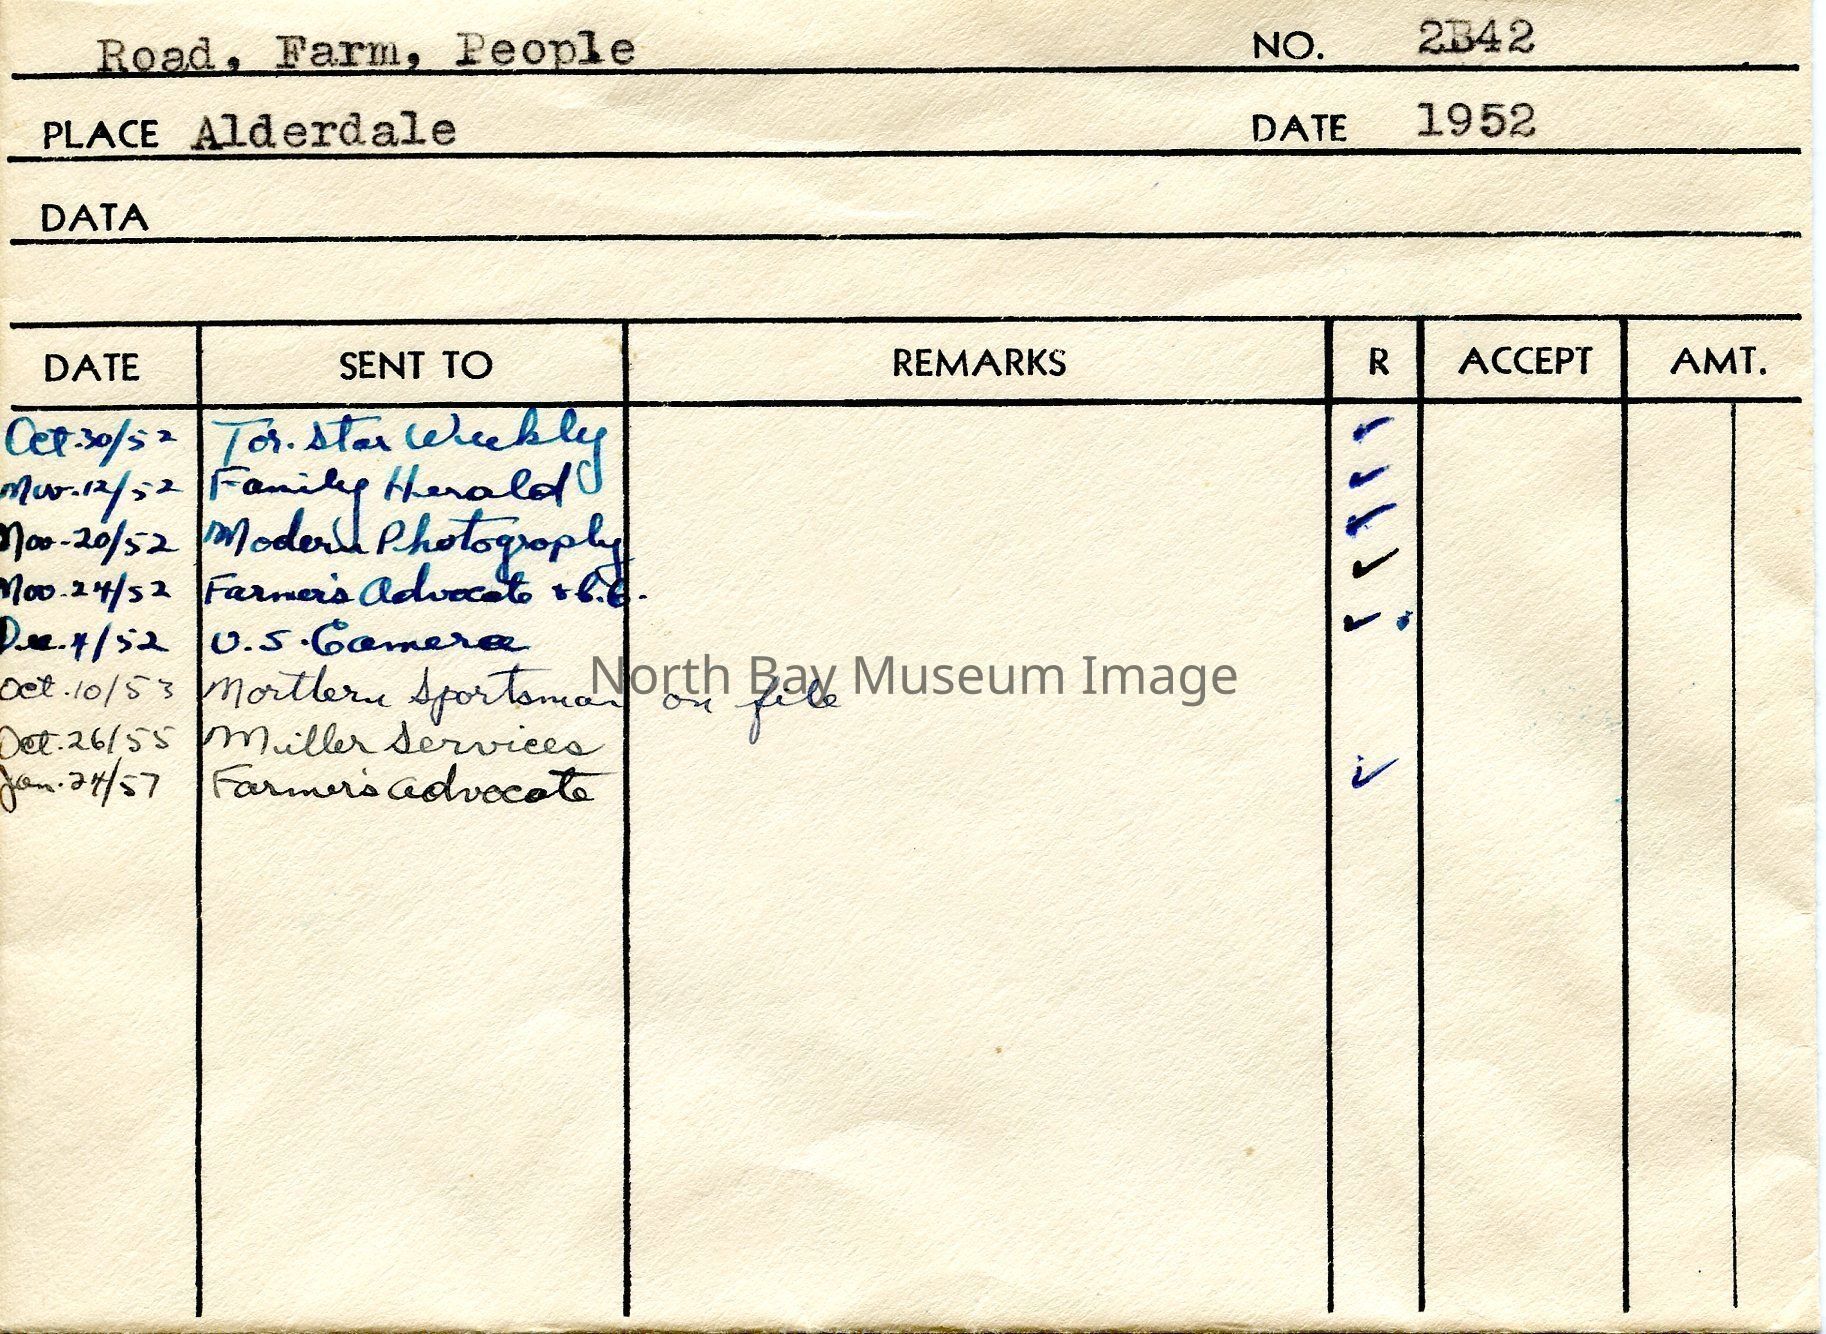 Road, Farm, People NO. 2B42
PLACE Alderdale DATE 1952
DATA
DATE SENT TO REMARKS R ACCEPT AMT.
Oct.30/52 Tor. Star Weekly ✓
Nov.12/52 Family Herald ✓
Nov.20/52 Modern Photography ✓
Nov.24/52 Farmer's Advocate ✓
Dec.4/52 U.S. Camera ✓
North Bay Museum Image
Oct.10/53 Northern Sportsman on file
Oct.26/55 Miller Services
Jan.24/57 Farmer's Advocate ✓